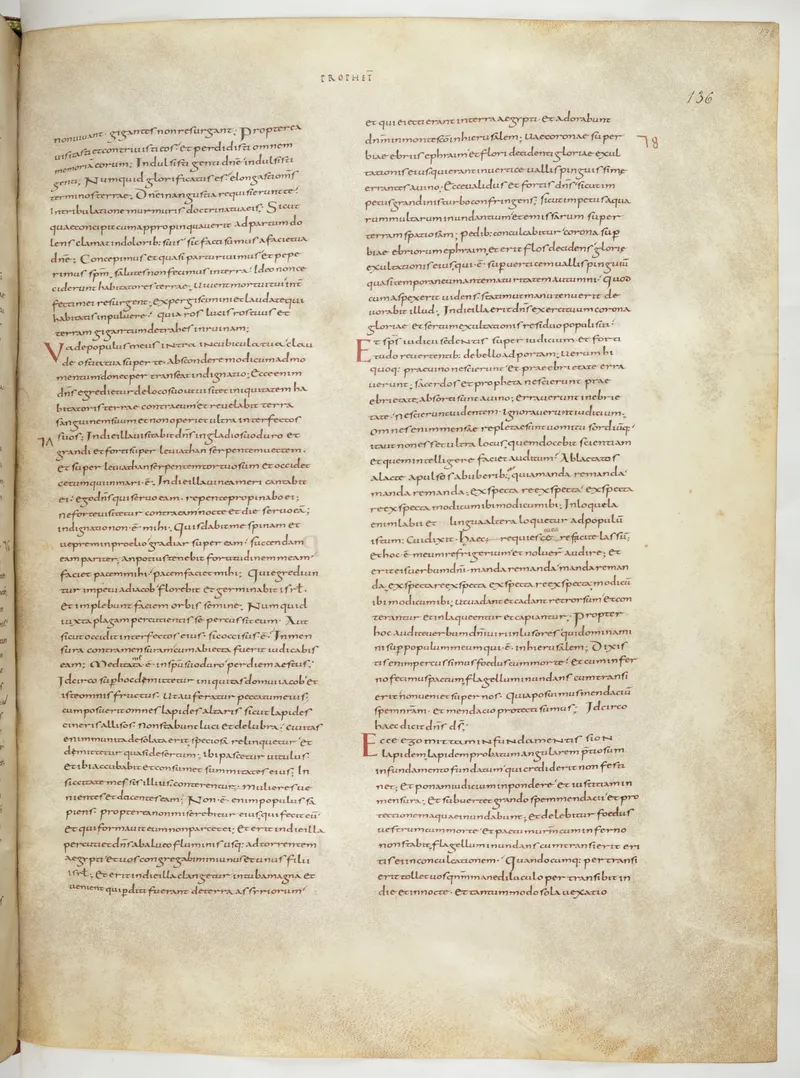 PROPHET
136
non uiuant. gigantes non resurgant; Propterea
uisitasti et contriuisti eos. et perdidisti omnem
memoriā eorum; Indulsisti genti dnē indulsisti
genti; Numquid glorificatus es. elongasti oms
terminos terrae; Dnē in angustia requisierunt te.
In tribulatione murmuris doctrina tua eis; Sicut
quae concipit cum appropinquauerit ad partum do
lens clamat in dolorib; suis. sic facti sumus a facie tua
dnē; Concepimus et quasi parturiuimus et pepe
rimus spm̄, salutes non fecimus in terra. Ideo non ce
ciderunt habitatores terrae; Uiuent mortui tui int
fecti mei resurgent, expergiscimini et laudate qui
habitatis in puluere. quia ros lucis ros tuus et
terram gigantum detrahes in ruinam;
Uade populus meus intra in cubicula tua clau
de ostia tua super te. abscondere modicum ad mo
mentum donec pertranseat indignatio; Ecce enim
dns̄ egredietur de loco suo ut uisitet iniquitatem ha
bitatoris terrae contra eum. et reuelabit terra
sanguinem suum et non operiet ultra interfectos
suos; In die illa uisitabit dns̄ in gladio suo duro et
grandi et forti super leuiathan serpentem uectem.
et super leuiathan serpentem tortuosum et occidet
cetum qui in mari .ē. In die illa uinea meri cantabit
ei. ego dns̄ qui seruo eam. repente propinabo ei;
ne forte uisitetur contra eam nocte et die seruo eā;
indignatio non .ē. mihi; Quis dabit me spinam et
ueprem in proelio gradiar super eam. succendam
eam pariter. an potius tenebit fortitudinem meam.
faciet pacem mihi. pacem faciet mihi; Qui egrediun
tur impetu ad iacob. florebit et germinabit isrl̄.
et implebunt faciem orbis semine; Numquid
iuxta plagam percutientis se percussit eum. Aut
sicut occidit interfectos eius. sic occisus .ē. In men
sura contra mensuram cum abiecta fuerit iudicabis
eam; Meditata .ē. in spū suo duro per diem aestus;
Idcirco sup hoc dimittetur iniquitas domui iacob. et
iste omnis fructus. Ut auferatur peccatum eius.
cum posuerit omnes lapides altaris sicut lapides
cineris allisos. Non stabunt luci et delubra. ciuitas
enim munita desolata erit. speciosa relinquetur et
dimittetur quasi desertum; ibi pascetur uitulus.
et ibi accubabit et consumet summitates eius; In
siccitate messis illius conterentur; mulieres ue
nientes et docentes eam; Non .ē. enim populus sa
piens. propterea non miserebitur eius qui fecit eū.
et qui formauit eum non parcet ei; et erit in die illa
percutiet dns̄ ab alueo fluminis usq; ad torrentem
aegypti. et uos congregabimini unus et unus filii
isrl̄; et erit in die illa clangetur in tuba magna et
uenient qui perditi fuerant de terra assyriorum.
et qui eiecti erant in terra aegypti. et adorabunt
dnm̄ in monte sc̄o in hierusalem; Uae coronae super
biae ebriis ephraim et flori decidenti gloriae exul
tationis eius qui erant in uertice uallis pinguissime
errantes a uino. Ecce ualidus et fortis dns̄ sicut im
petus grandinis turbo confringens. sicut impetus aqua
rum multarum inundantium et emissarum super
terram spatiosam; pedib; conculcabitur corona sup
biae ebriorum ephraim. et erit flos decidens glorie
exultationis eius. qui .ē. super uerticem uallis pinguium
quasi temporaneum ante maturitatem autumni. Quod
cum aspexerit uidens. statim ut manu tenuerit de
uorabit illud; In die illa erit dns̄ exercituum corona
gloriae et sertum exultationis residuo populi sui.
Et sps̄ iudicii sedentis super iudicium. et forti
tudo reuertentib; de bello ad portam; Uerum hi
quoq; prae uino nescierunt. et prae ebrietate erra
uerunt; sacerdos et propheta nescierunt prae
ebrietate. absorti sunt a uino; Errauerunt in ebrie
tate. nescierunt uidentem. ignorauerunt iudicium.
Omnes enim mensae repletae sunt uomitu sordiūq;
ita ut non esset ultra locus; quem docebit scientiam
et quem intellegere faciet auditum. Ablactatos
a lacte. apulsos ab uberib; quia manda remanda.
manda remanda; expecta reexpecta. expecta
reexpecta modicum ibi modicum ibi; In loquela
enim labii et lingua altera loquetur ad populū
istum; Cui dixit. Haec requies mea. reficite lassū;
et hoc .ē. meum refrigerium et noluer audire; et
erit eis uerbum dni. manda remanda. manda reman
da. expecta reexpecta. expecta reexpecta. modicū
ibi modicum ibi; ut uadant et cadant retrorsum et con
terantur et inlaqueentur et capiantur; Propter
hoc audite uerbum dni uiri inlusores qui dominami
ni sup populum meum qui .ē. in hierusalem; Dixis
tis enim percussimus foedus cum morte. et cum infer
no fecimus pactum. flagellum inundans cum transi
erit non ueniet super nos. Quia posuimus mendaciū
spem nram̄. et mendacio protecti sumus; Idcirco
haec dicit dns̄ ds̄;
Ecce ego mittam in fundamentis sion
lapidem. lapidem probatum angularem p̄tiosum
in fundamento fundatum qui crediderit non festi
net; et ponam iudicium in pondere. et iustitiam in
mensura; et subuertet grando spem mendacii. et pro
tectionem aquae inundabunt; et delebitur foedus
uestrum cum morte. et pactum urm̄ cum inferno
non stabit; flagellum inundans cum transierit eri
tis ei in conculcationem. Quandocumq; per transi
erit tollet uos qnm̄ mane diluculo pertransibit in
die et in nocte. et tantummodo sola uexatio